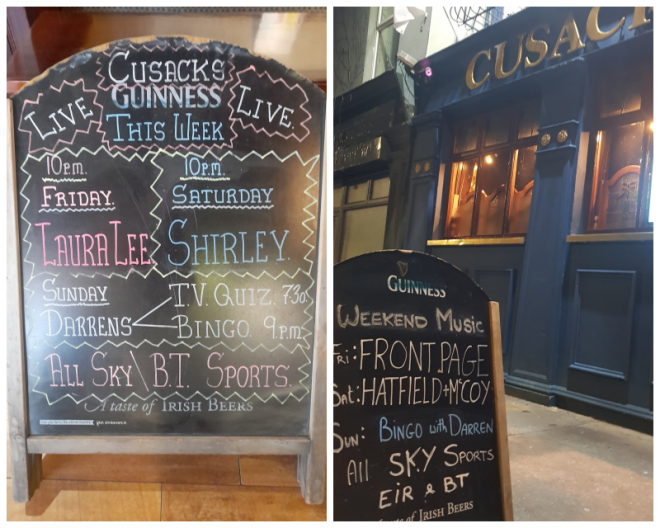 CUSACKS
GUINNESS
LIVE LIVE.
THIS WEEK
10p.m. 10p.m.
FRIDAY. SATURDAY
LAURA LEE SHIRLEY.
SUNDAY T.V. QUIZ. 7.30
DARRENS BINGO. 9.p.m.
ALL SKY\ B.T. SPORTS.
A taste of IRISH BEERS
CUSAC
GUINNESS
WEEKEND MUSIC
Fri: FRONT PAGE
Sat: HATFIELD + McCOY
SUN: BINGO with DARREN
All SKY SPORTS
EiR & BT
taste of IRISH BEERS